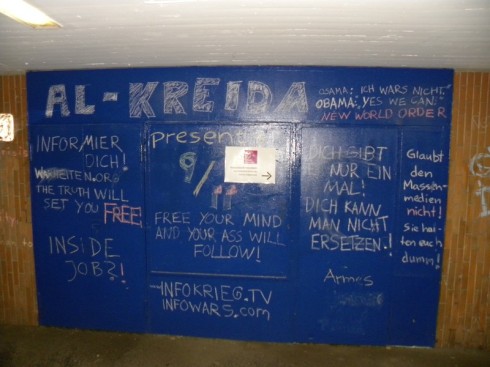 AL-KREIDA
OSAMA: "ICH WARS NICHT."
OBAMA: "YES WE CAN!"
NEW WORLD ORDER
INFORMIER
DICH!
WAHRHEITEN.ORG
THE TRUTH WILL
SET YOU FREE!
INSIDE
JOB?!
present
9/11
FREE YOUR MIND
AND YOUR ASS WILL
FOLLOW!
INFOKRIEG.TV
INFOWARS.com
DICH GIBT
NUR EIN
MAL!
DICH KANN
MAN NICHT
ERSETZEN!
Armes
Glaubt
den
Massen-
medien
nicht!
Sie hal-
ten euch
dumm!